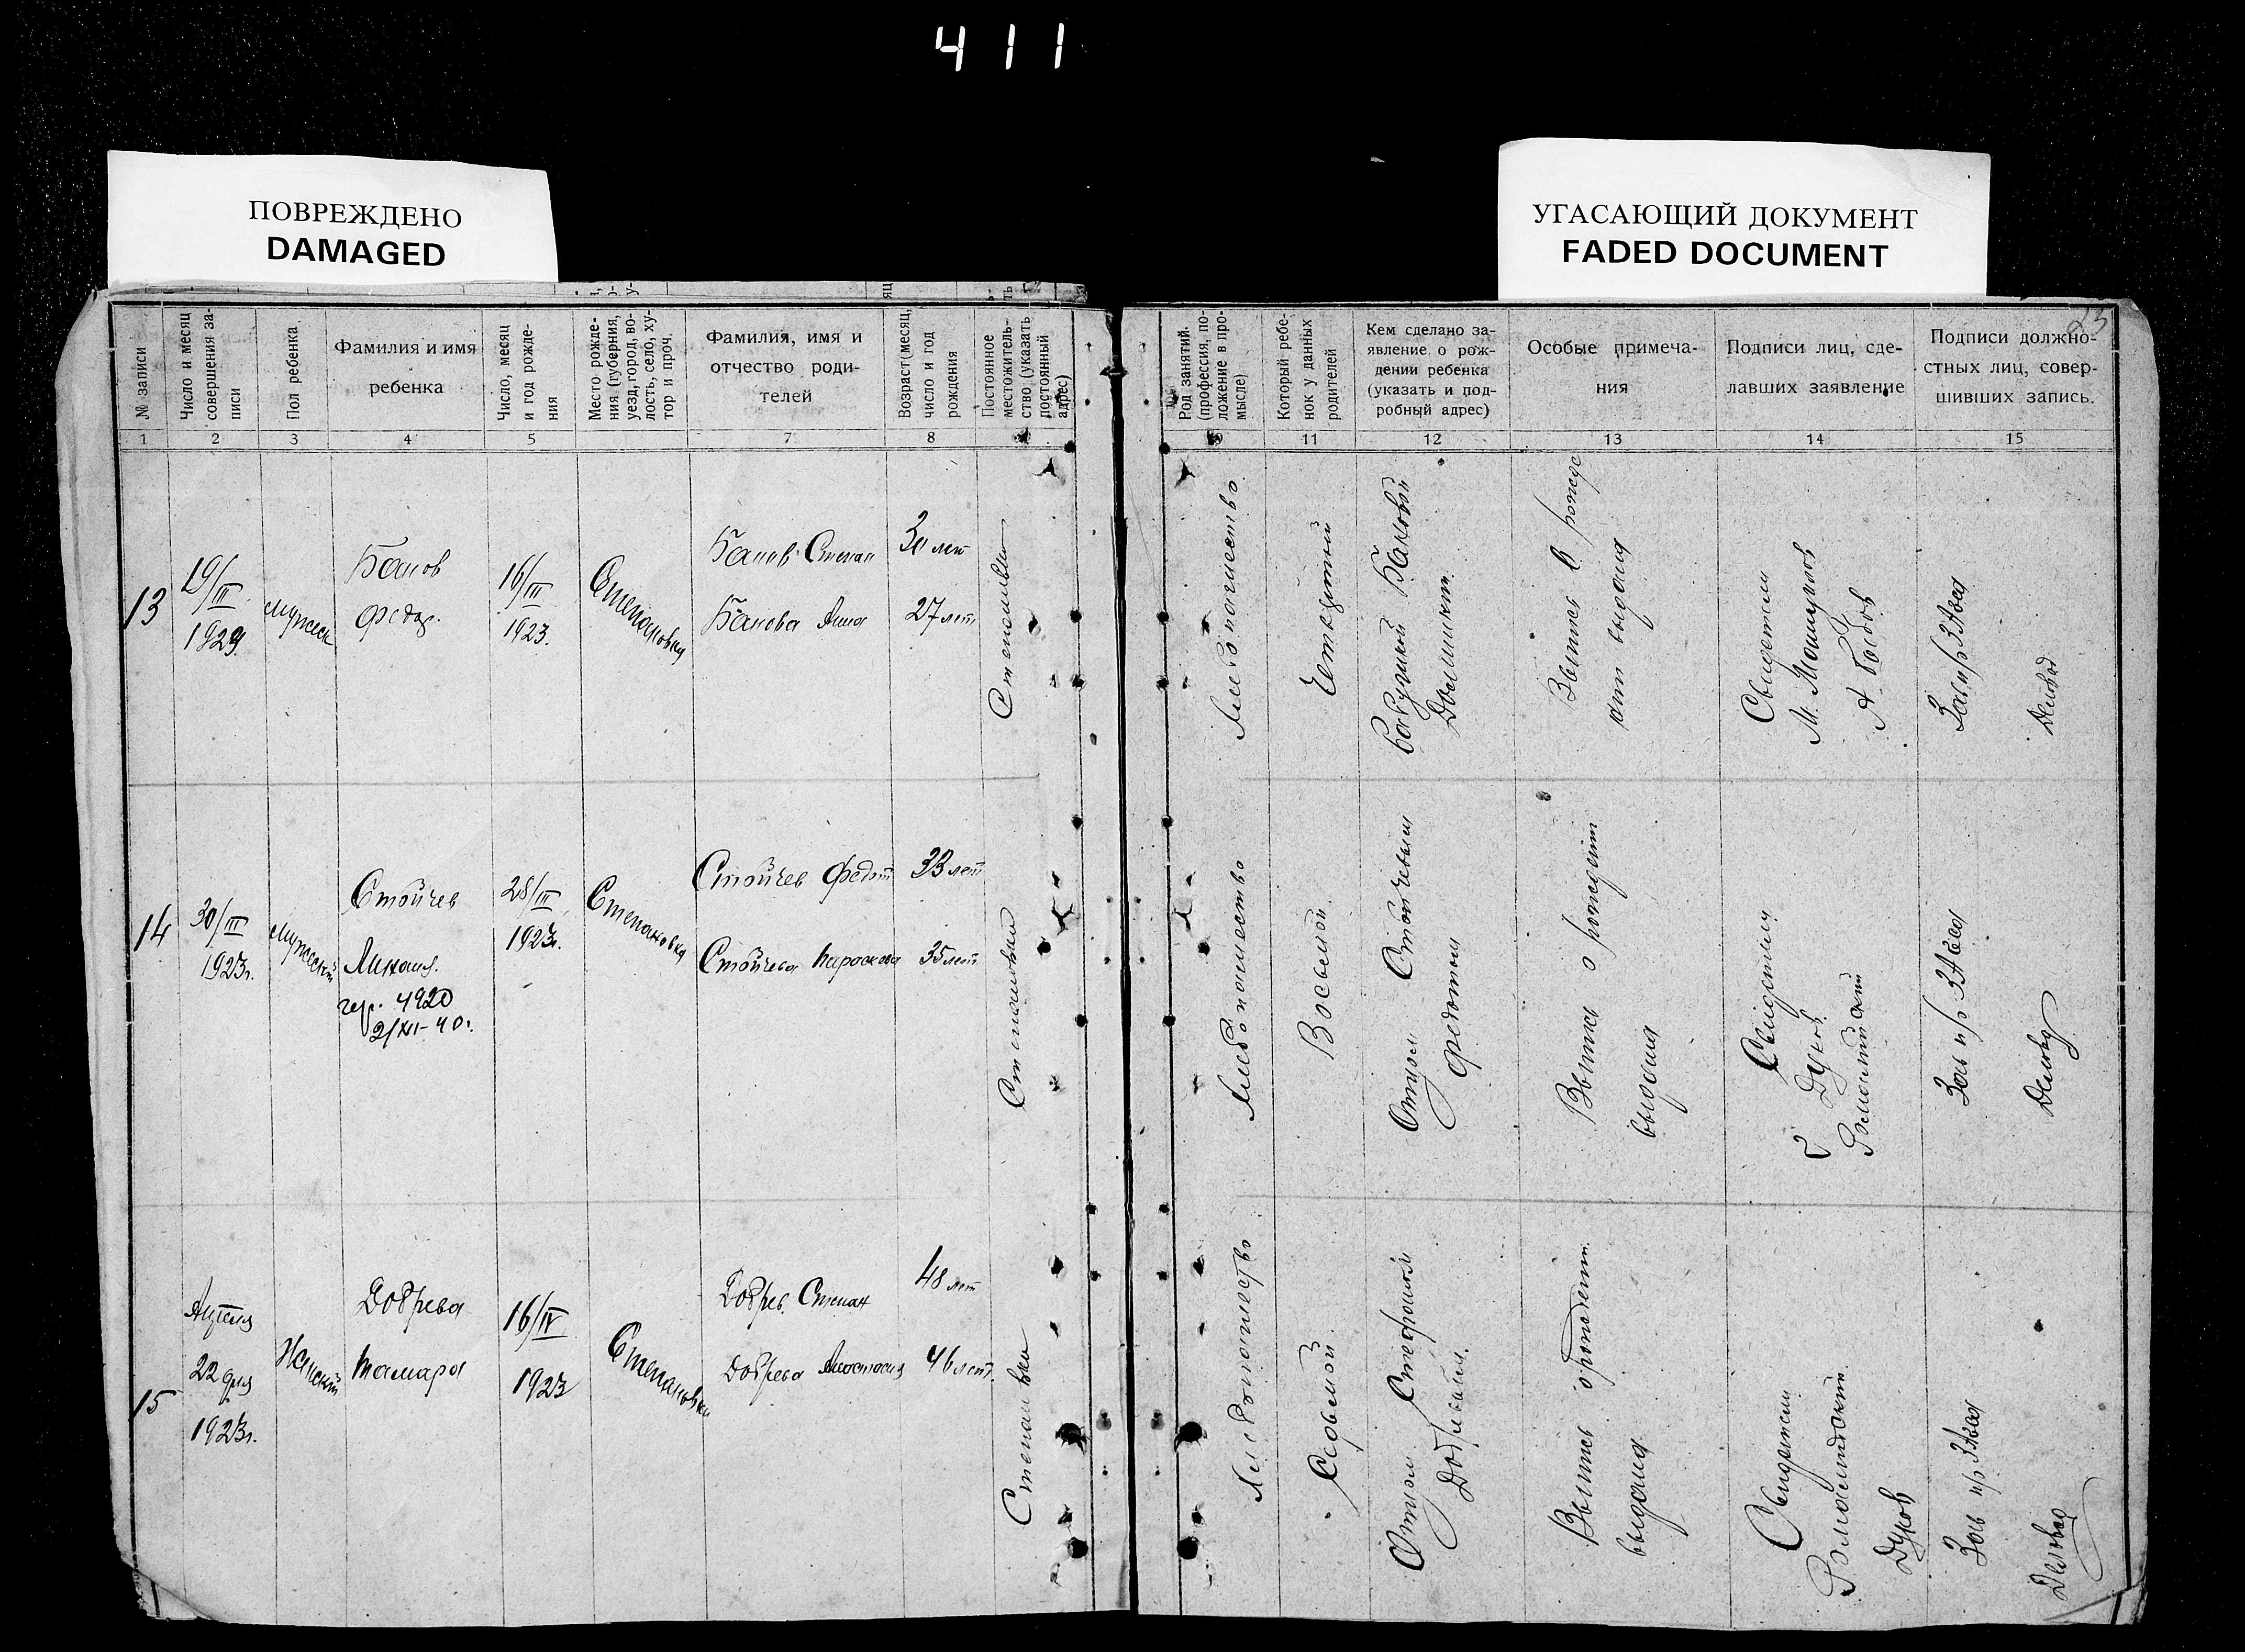 411
ПОВРЕЖДЕНО
DAMAGED
УГАСАЮЩИЙ ДОКУМЕНТ
FADED DOCUMENT
23
№ записи
Число и месяц
совершения за-
писи
Пол ребенка
Фамилия и имя
ребенка
Число, месяц
и год рожде-
ния
Место рожде-
ния (губерния,
уезд, город, во-
лость, село, ху-
тор и проч.
Фамилия, имя и
отчество роди-
телей
Возраст (месяц,
число и год
рождения
Постоянное
местожитель-
ство (указать
постоянный
адрес)
Род занятий
(профессия, по-
ложение в про-
мысле)
Который ребе-
нок у данных
родителей
Кем сделано за-
явление о рож-
дении ребенка
(указать и под-
робный адрес)
Особые примеча-
ния
Подписи лиц, сде-
лавших заявление
Подписи должно-
стных лиц, совер-
шивших запись.
1 2 3 4 5 6 7 8
11 12 13 14 15
13
19/III
1923
мужск
Банов
Федор.
16/III
1923.
Степановка
Банов Степан
Банова Анна
30 лет
27 лет
Степановка
Хлебопашество
Четвертый
бабушкой Бановой
выдана
Свидетели
14
30/III
1923г.
мужской
Стойчев
Михаил.
4920
2/XII-40г.
28/III
1923г.
Степановка
Стойчев Федот
Стойчева Параскева
33 лет
35 лет
Степановка
Хлебопашество
Восьмой
Отцом Стойчевым
Федотом
Выпись о рождении
выдана
Свидетели
15
Апреля
22 дня
1923г.
Женский
Добрева
Тамара
16/IV
1923
Степановка
Добрев Степан
Добрева Анастасия
48 лет
46 лет
Степановка
Хлебопашество
Седьмой
Отцом Стефаном
Добревым.
Выпись о рождении
выдана
Свидетели
Дуков